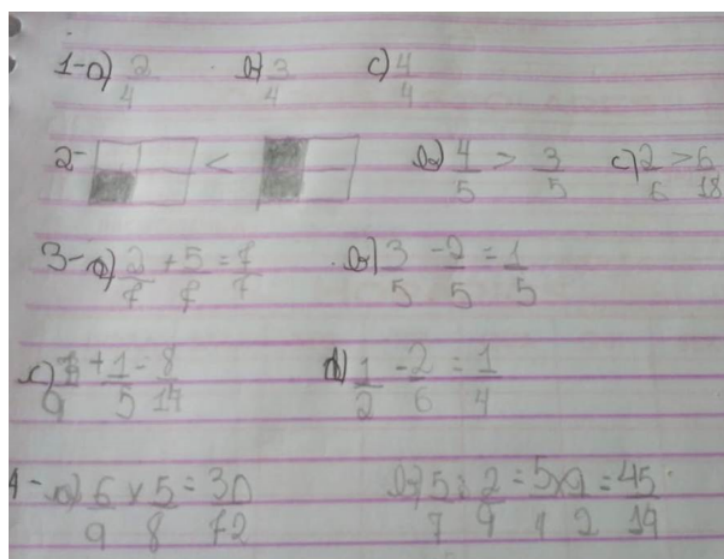 1-a) 2/4 b) 3/4 c) 4/4
2- < b) 4/5 > 3/5 c) 2/6 > 6/18
3- a) 2/7 + 5/7 = 7/7 b) 3/5 - 2/5 = 1/5
c) 7/9 + 1/5 = 8/14 d) 1/2 - 2/6 = 1/4
4- a) 6/9 x 5/8 = 30/72 b) 5/7 : 2/9 = 5x9/7 2 = 45/14